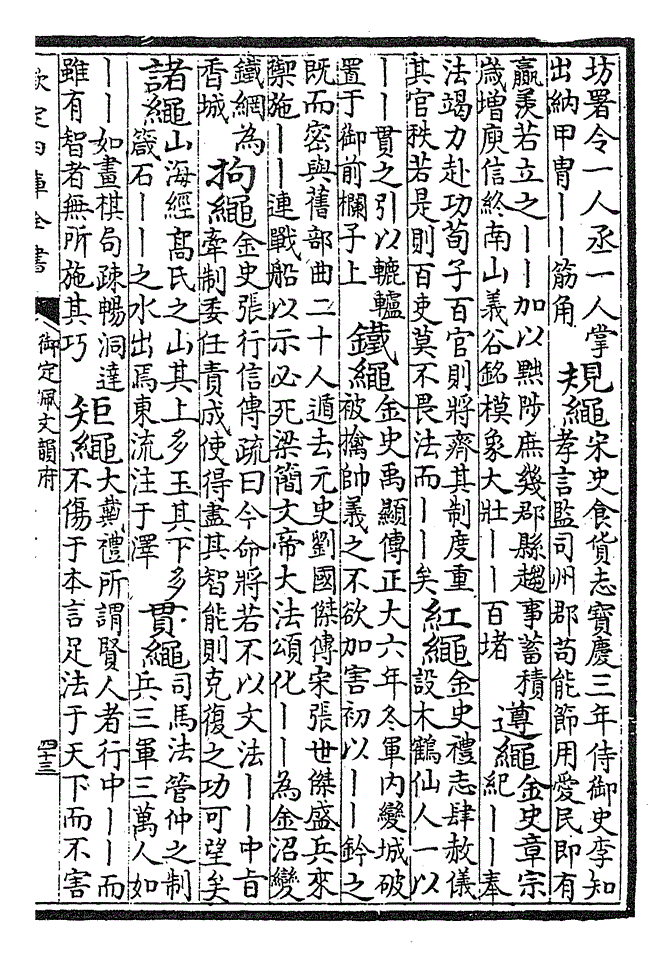 坊署令一人丞一人掌
出納甲冑——筋角
規繩
宋史食貨志寶慶三年侍御史李知
孝言監司州郡苟能節用愛民即有
羸羨若立之——加以黜陟庶幾郡縣趨事蓄積
歲增庾信終南山義谷銘模象大壯——百堵
遵繩
金史章宗
紀——奉
法竭力赴功荀子百官則將齊其制度重
其官秩若是則百吏莫不畏法而——矣
紅繩
金史禮志肆赦儀
設木鶴仙人一以
——貫之引以轆轤
置于御前欄子上
鐵繩
金史禹顯傳正大六年冬軍內變城破
被擒帥義之不欲加害初以——鈐之
既而密與舊部曲二十人遁去元史劉國傑傳宋張世傑盛兵來
禦施——連戰船以示必死梁簡文帝大法頌化——為金沼變
鐵網為
香城
拘繩
金史張行信傳疏曰今命將若不以文法——中旨
牽制委任責成使得盡其智能則克復之功可望矣
諸繩
山海經高氏之山其上多玉其下多
箴石——之水出焉東流注于澤
貫繩
司馬法管仲之制
兵三軍三萬人如
——如畫棋局疎暢洞達
雖有智者無所施其巧
矩繩
大戴禮所謂賢人者行中——而
不傷于本言足法于天下而不害
欽定四庫全書
御定佩文韻府
四十三